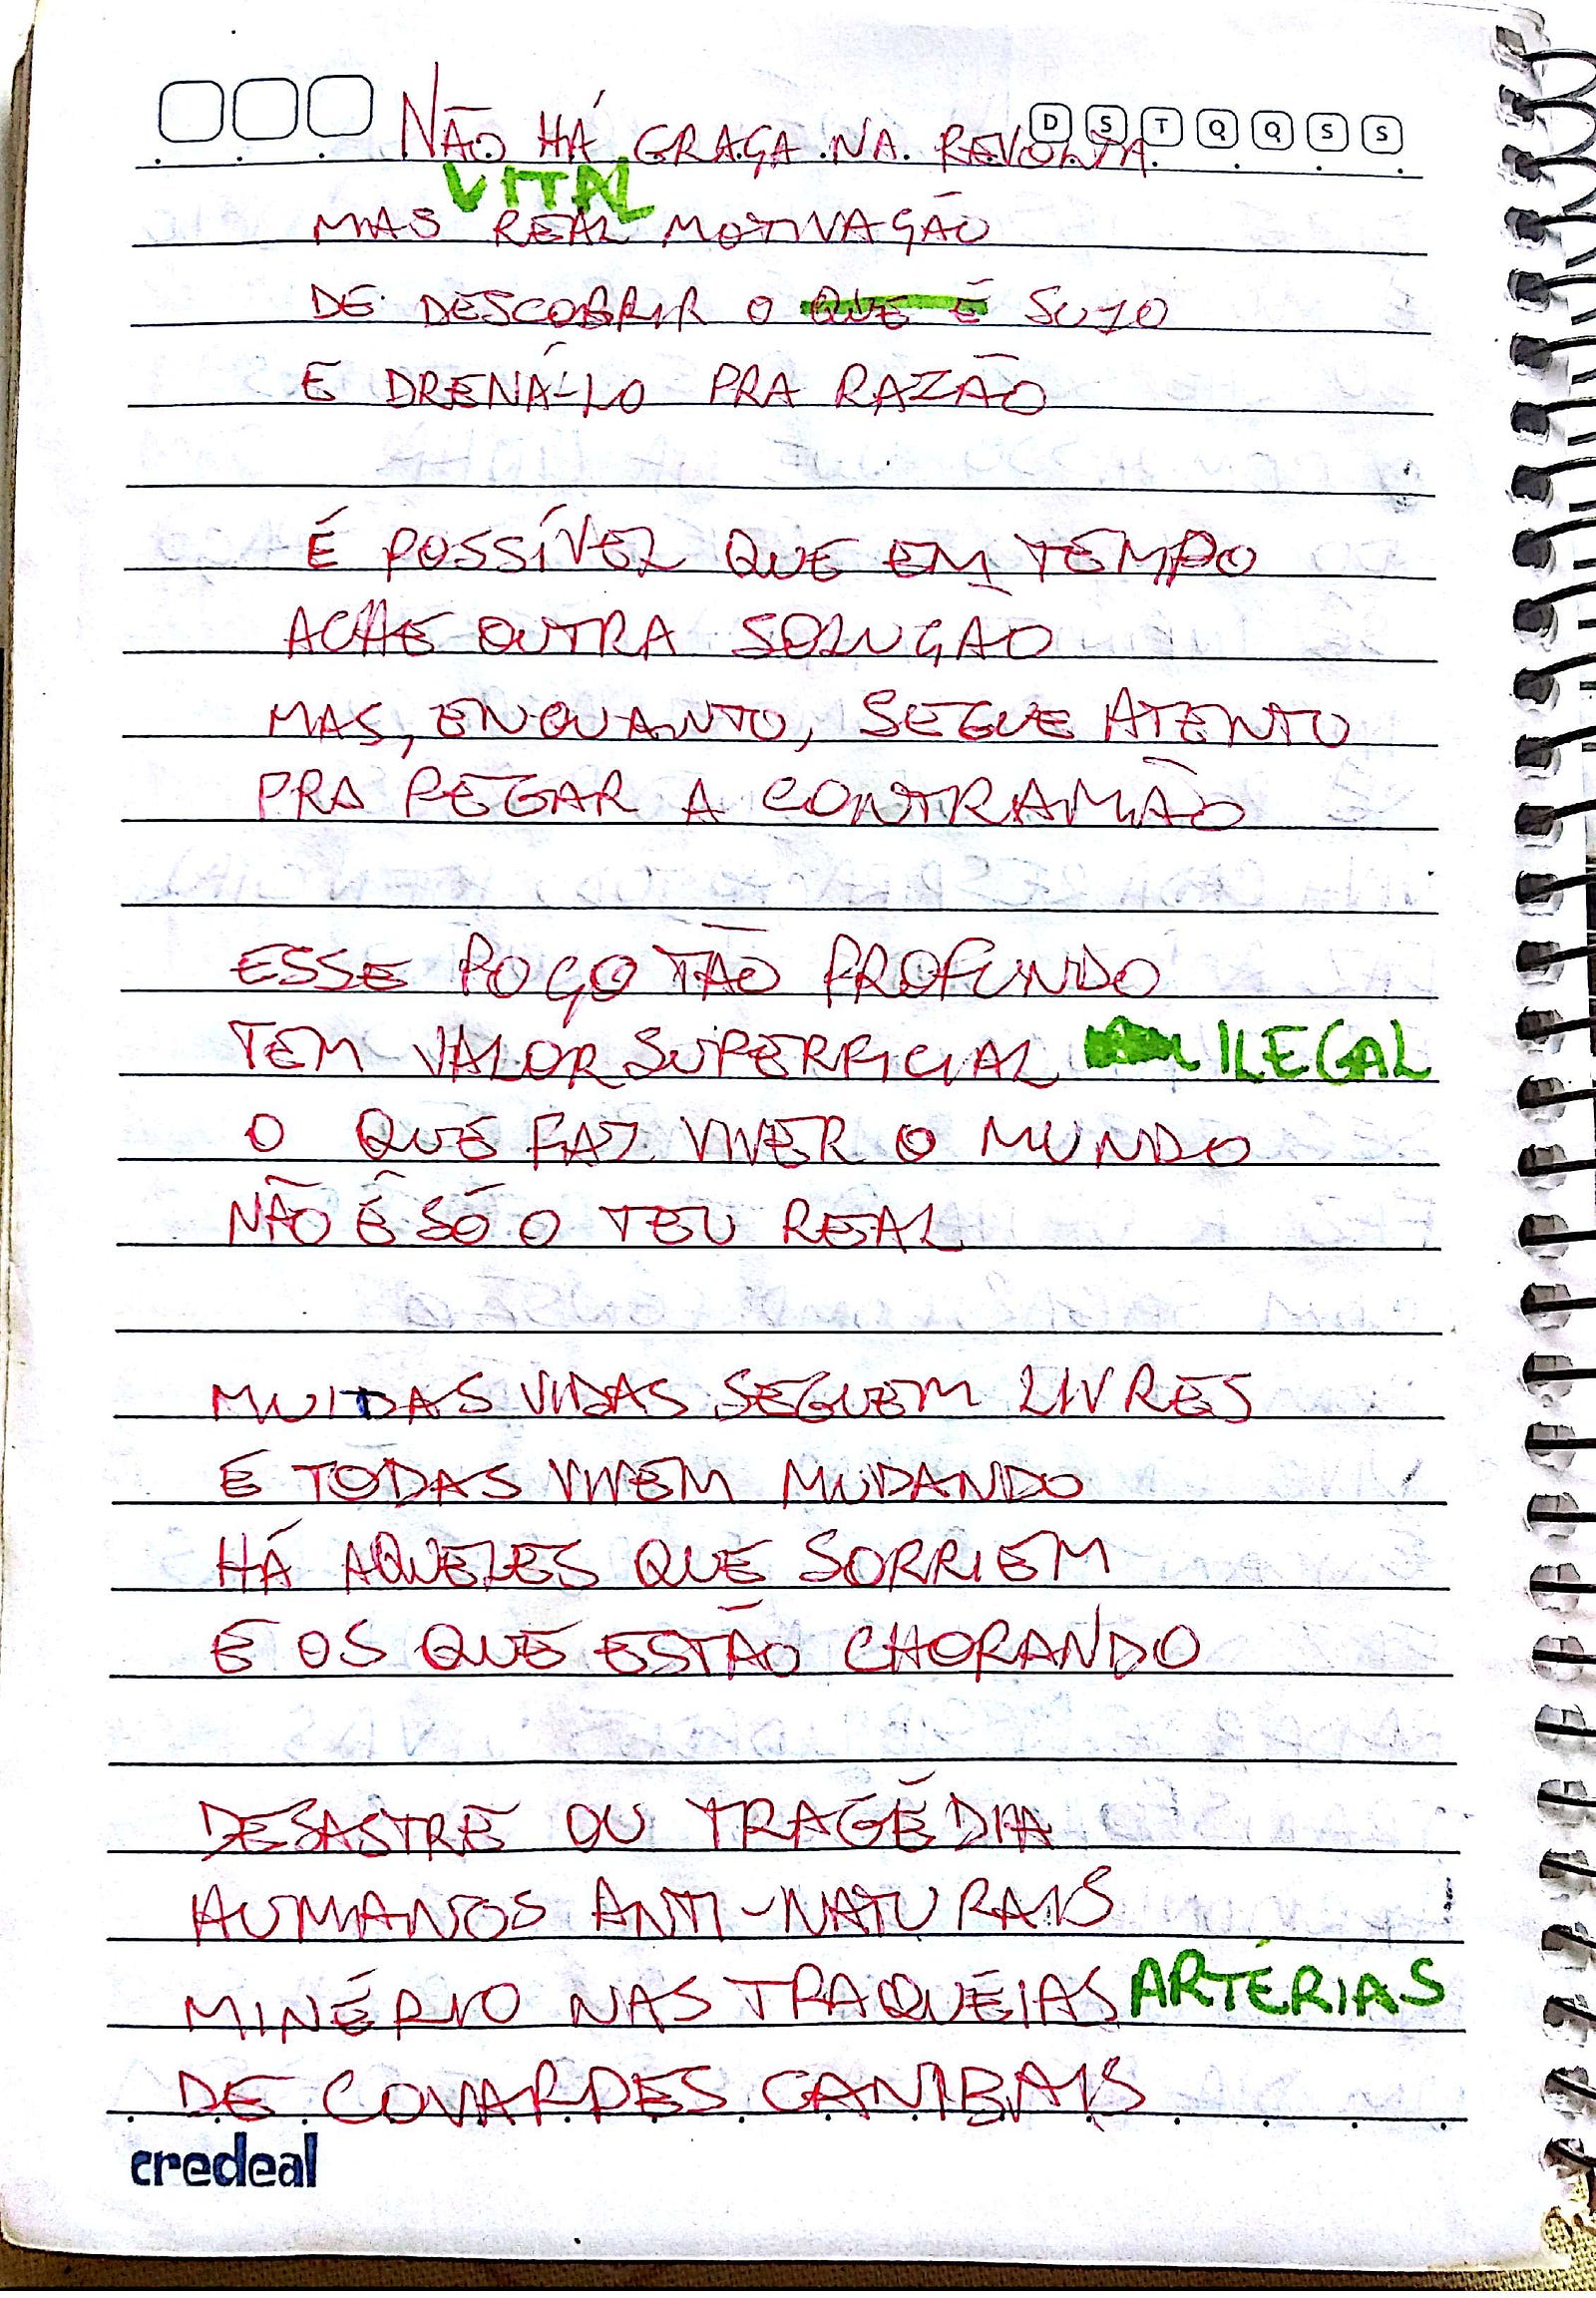 D S T Q Q S S
NÃO HÁ GRAÇA NA REVOLTA
VITAL
MAS REAL MOTIVAÇÃO
DE DESCOBRIR O QUE É SUJO
E DRENÁ-LO PRA RAZÃO
É POSSÍVEL QUE EM TEMPO
ACHE OUTRA SOLUÇÃO
MAS, ENQUANTO, SEGUE ATENTO
PRA PEGAR A CONTRAMÃO
ESSE POÇO TÃO PROFUNDO
TEM VALOR SUPERFICIAL ILEGAL
O QUE FAZ VIVER O MUNDO
NÃO É SÓ O TEU REAL
MUITAS VIDAS SEGUEM LIVRES
E TODAS VIVEM MUDANDO
HÁ AQUELES QUE SORRIEM
E OS QUE ESTÃO CHORANDO
DESASTRE OU TRAGÉDIA
HUMANOS ANTI-NATURAIS
MINÉRIO NAS TRAQUÉIAS ARTÉRIAS
DE COVARDES CANIBAIS
credeal